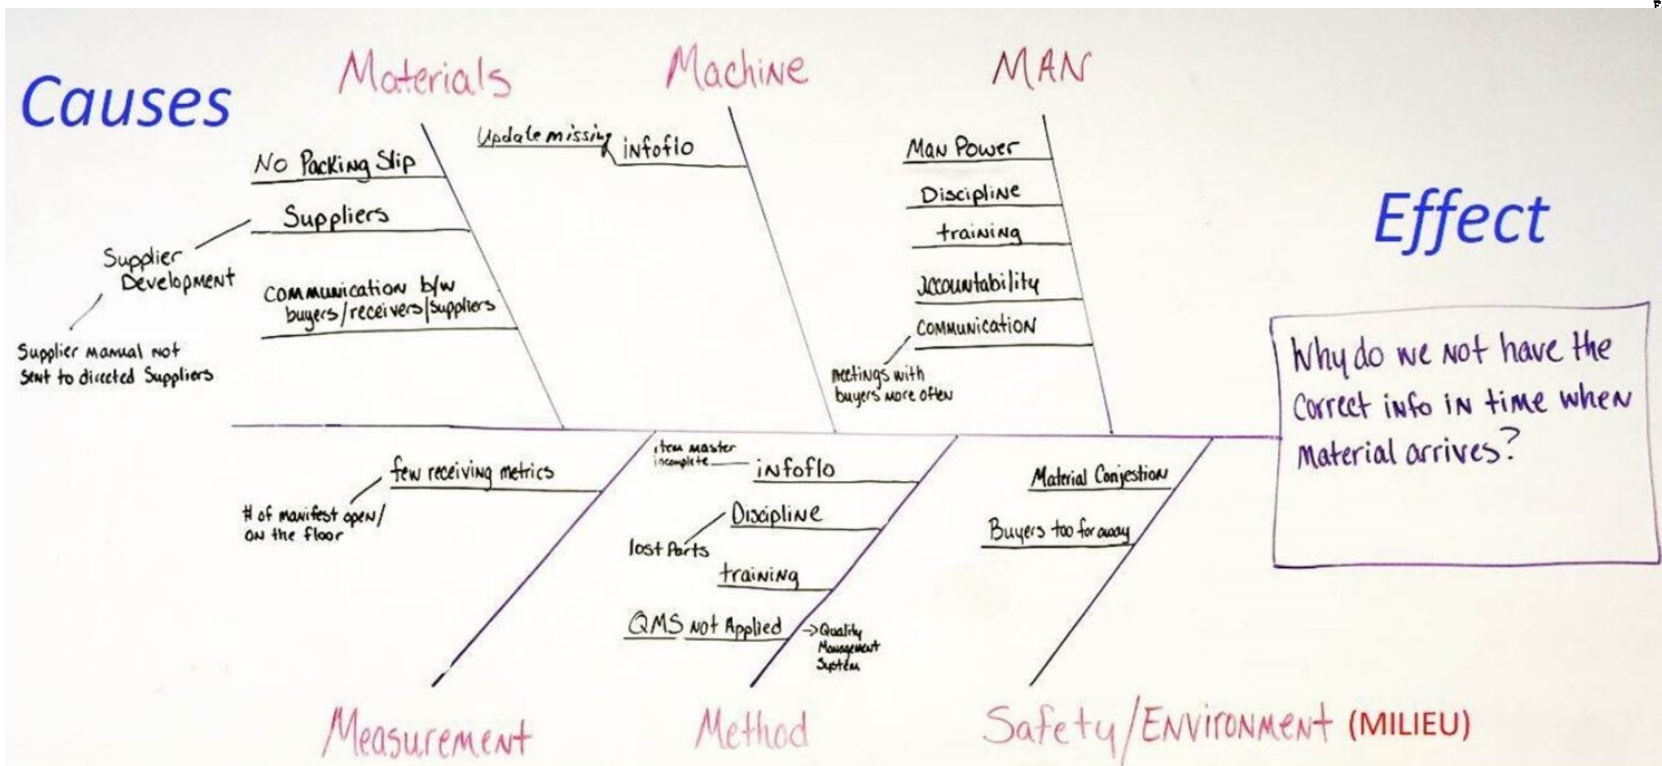 Causes
Materials
Machine
MAN
No Packing Slip
Suppliers
Supplier
Development
Supplier manual not
sent to directed Suppliers
Communication b/w
buyers/receivers/suppliers
Update missing
infoflo
Man Power
Discipline
training
accountability
communication
meetings with
buyers more often
Effect
Why do we not have the
correct info in time when
material arrives?
few receiving metrics
# of manifest open/
on the floor
item master
incomplete
infoflo
Discipline
lost Parts
training
QMS not Applied
→Quality
Management
System
Material Conjestion
Buyers too far away
Measurement
Method
Safety/Environment (MILIEU)